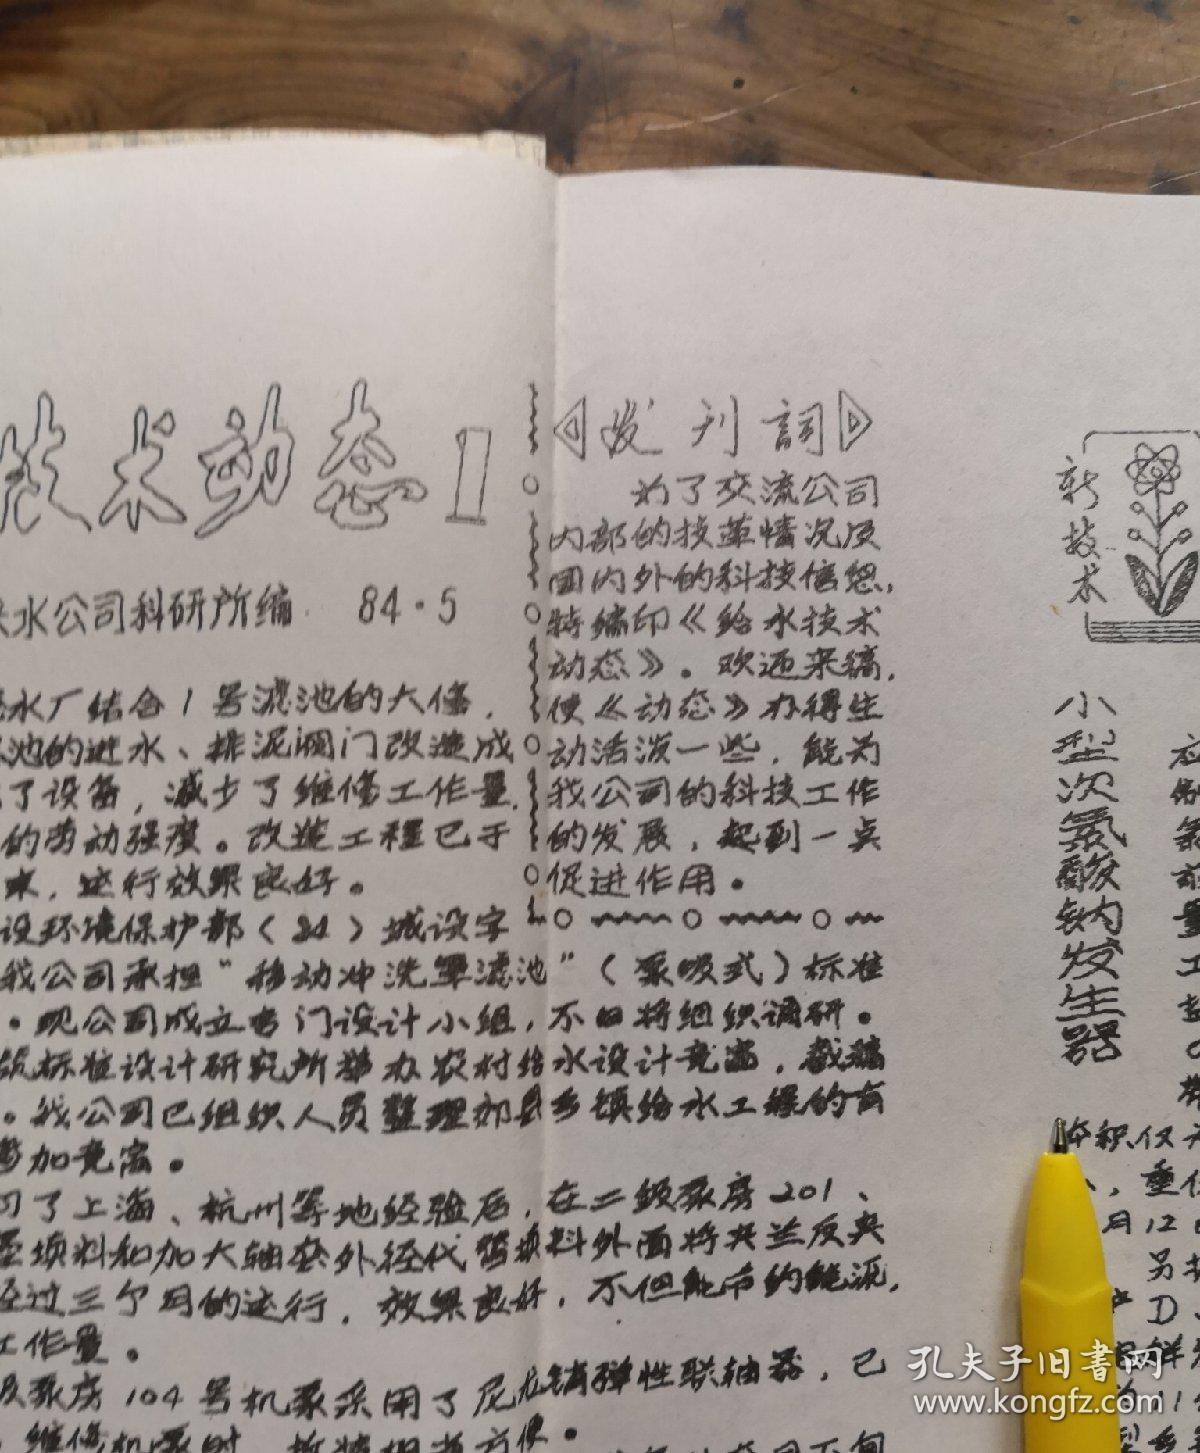 技术动态 1
水公司科研所编 84·5
水厂结合1号滤池的大修，
池的进水、排泥阀门改造成
了设备，减少了维修工作量，
的劳动强度。改造工程已于
末，运行效果良好。
《发刊词》
为了交流公司
内部的技革情况及
国内外的科技信息，
特编印《给水技术
动态》。欢迎来稿，
使《动态》办得生
动活泼一些，能为
我公司的科技工作
的发展，起到一点
促进作用。
设环境保护部（84）城设字
我公司承担“移动冲洗罩滤池”（泵吸式）标准
。现公司成立专门设计小组，不日将组织调研。
标准设计研究所举办农村给水设计竞赛，截稿
。我公司已组织人员整理郊县乡镇给水工程的有
参加竞赛。
习了上海、杭州等地经验后，在二级泵房201、
填料和加大轴套外径代替填料外面将夹兰反夹
经过三个月的运行，效果良好，不但能节约能源，
工作量。
泵房104号机泵采用了尼龙销弹性联轴器，已
维修机泵时，拆装相当方便。
新技术
小型次氯酸钠发生器
体积仅
，重
月12
另
D
鲜
11
孔夫子旧书网
www.kongfz.com